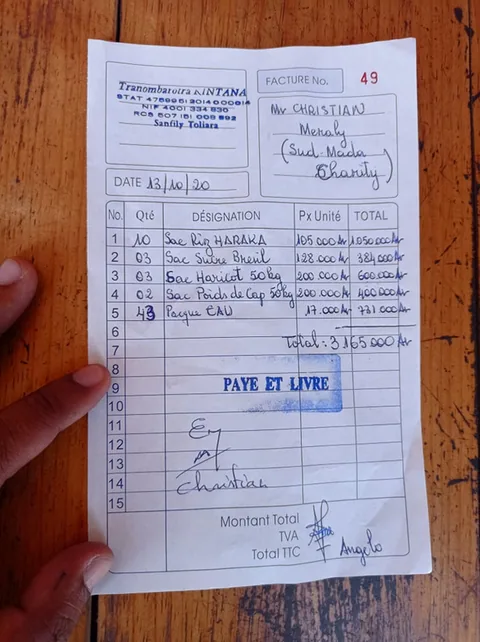 Tranombarotra KINTANA
STAT 47699512014000614
NIF 4001 334 930
RCS 507 151 009 892
Sanfily Toliara
FACTURE No. 49
Mr CHRISTIAN
Menaly
(Sud Mada
Charity)
DATE 13/10/20
No. Qté DÉSIGNATION Px Unité TOTAL
1 10 Sac Riz HARAKA 105.000Ar 1.050.000Ar
2 03 Sac Sucre Bresil 128.000Ar 384.000Ar
3 03 Sac Haricot 50kg 200.000Ar 600.000Ar
4 02 Sac Poids de Cap 50kg 200.000Ar 400.000Ar
5 43 Pacque EAU 17.000Ar 731.000Ar
6
7 Total: 3 165 000 Ar
8
9 PAYE ET LIVRE
10
11
12
13
14 Christian
15
Montant Total
TVA
Total TTC
Angelo